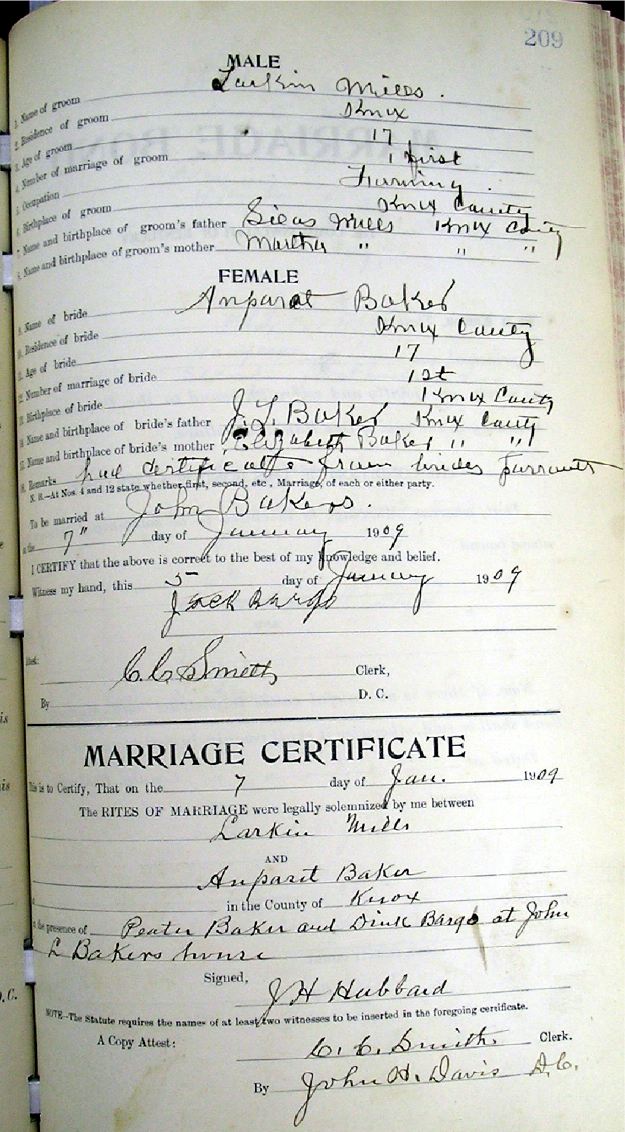 209
MALE
1. Name of groom Larkin Mills.
2. Residence of groom Knox
3. Age of groom 17
4. Number of marriage of groom 1 first
5. Occupation Farming.
6. Birthplace of groom Knox County
7. Name and birthplace of groom's father Silas Mills Knox County
8. Name and birthplace of groom's mother Martha " " "
FEMALE
9. Name of bride Anparat Baker
10. Residence of bride Knox County
11. Age of bride 17
12. Number of marriage of bride 1st
13. Birthplace of bride Knox County
14. Name and birthplace of bride's father J. L. Baker Knox County
15. Name and birthplace of bride's mother Elizabeth Baker " "
16. Remarks had certificate from brides parrants
N. B.—At Nos. 4 and 12 state whether first, second, etc., Marriage, of each or either party.
To be married at John Bakers.
on the 7" day of January 1909
I CERTIFY that the above is correct to the best of my knowledge and belief.
Witness my hand, this 5 day of January 1909
Jack Bargo
Attest:
C. C. Smith Clerk,
By D. C.
MARRIAGE CERTIFICATE
This is to Certify, That on the 7 day of Jan. 1909
The RITES OF MARRIAGE were legally solemnized by me between
Larkin Mills
AND
Anparit Baker
in the County of Knox
in the presence of Peater Baker and Dink Bargo at John
L Bakers house
Signed,
J H Hubbard
NOTE—The Statute requires the names of at least two witnesses to be inserted in the foregoing certificate.
A Copy Attest: C. C. Smith. Clerk.
By John H. Davis D.C.